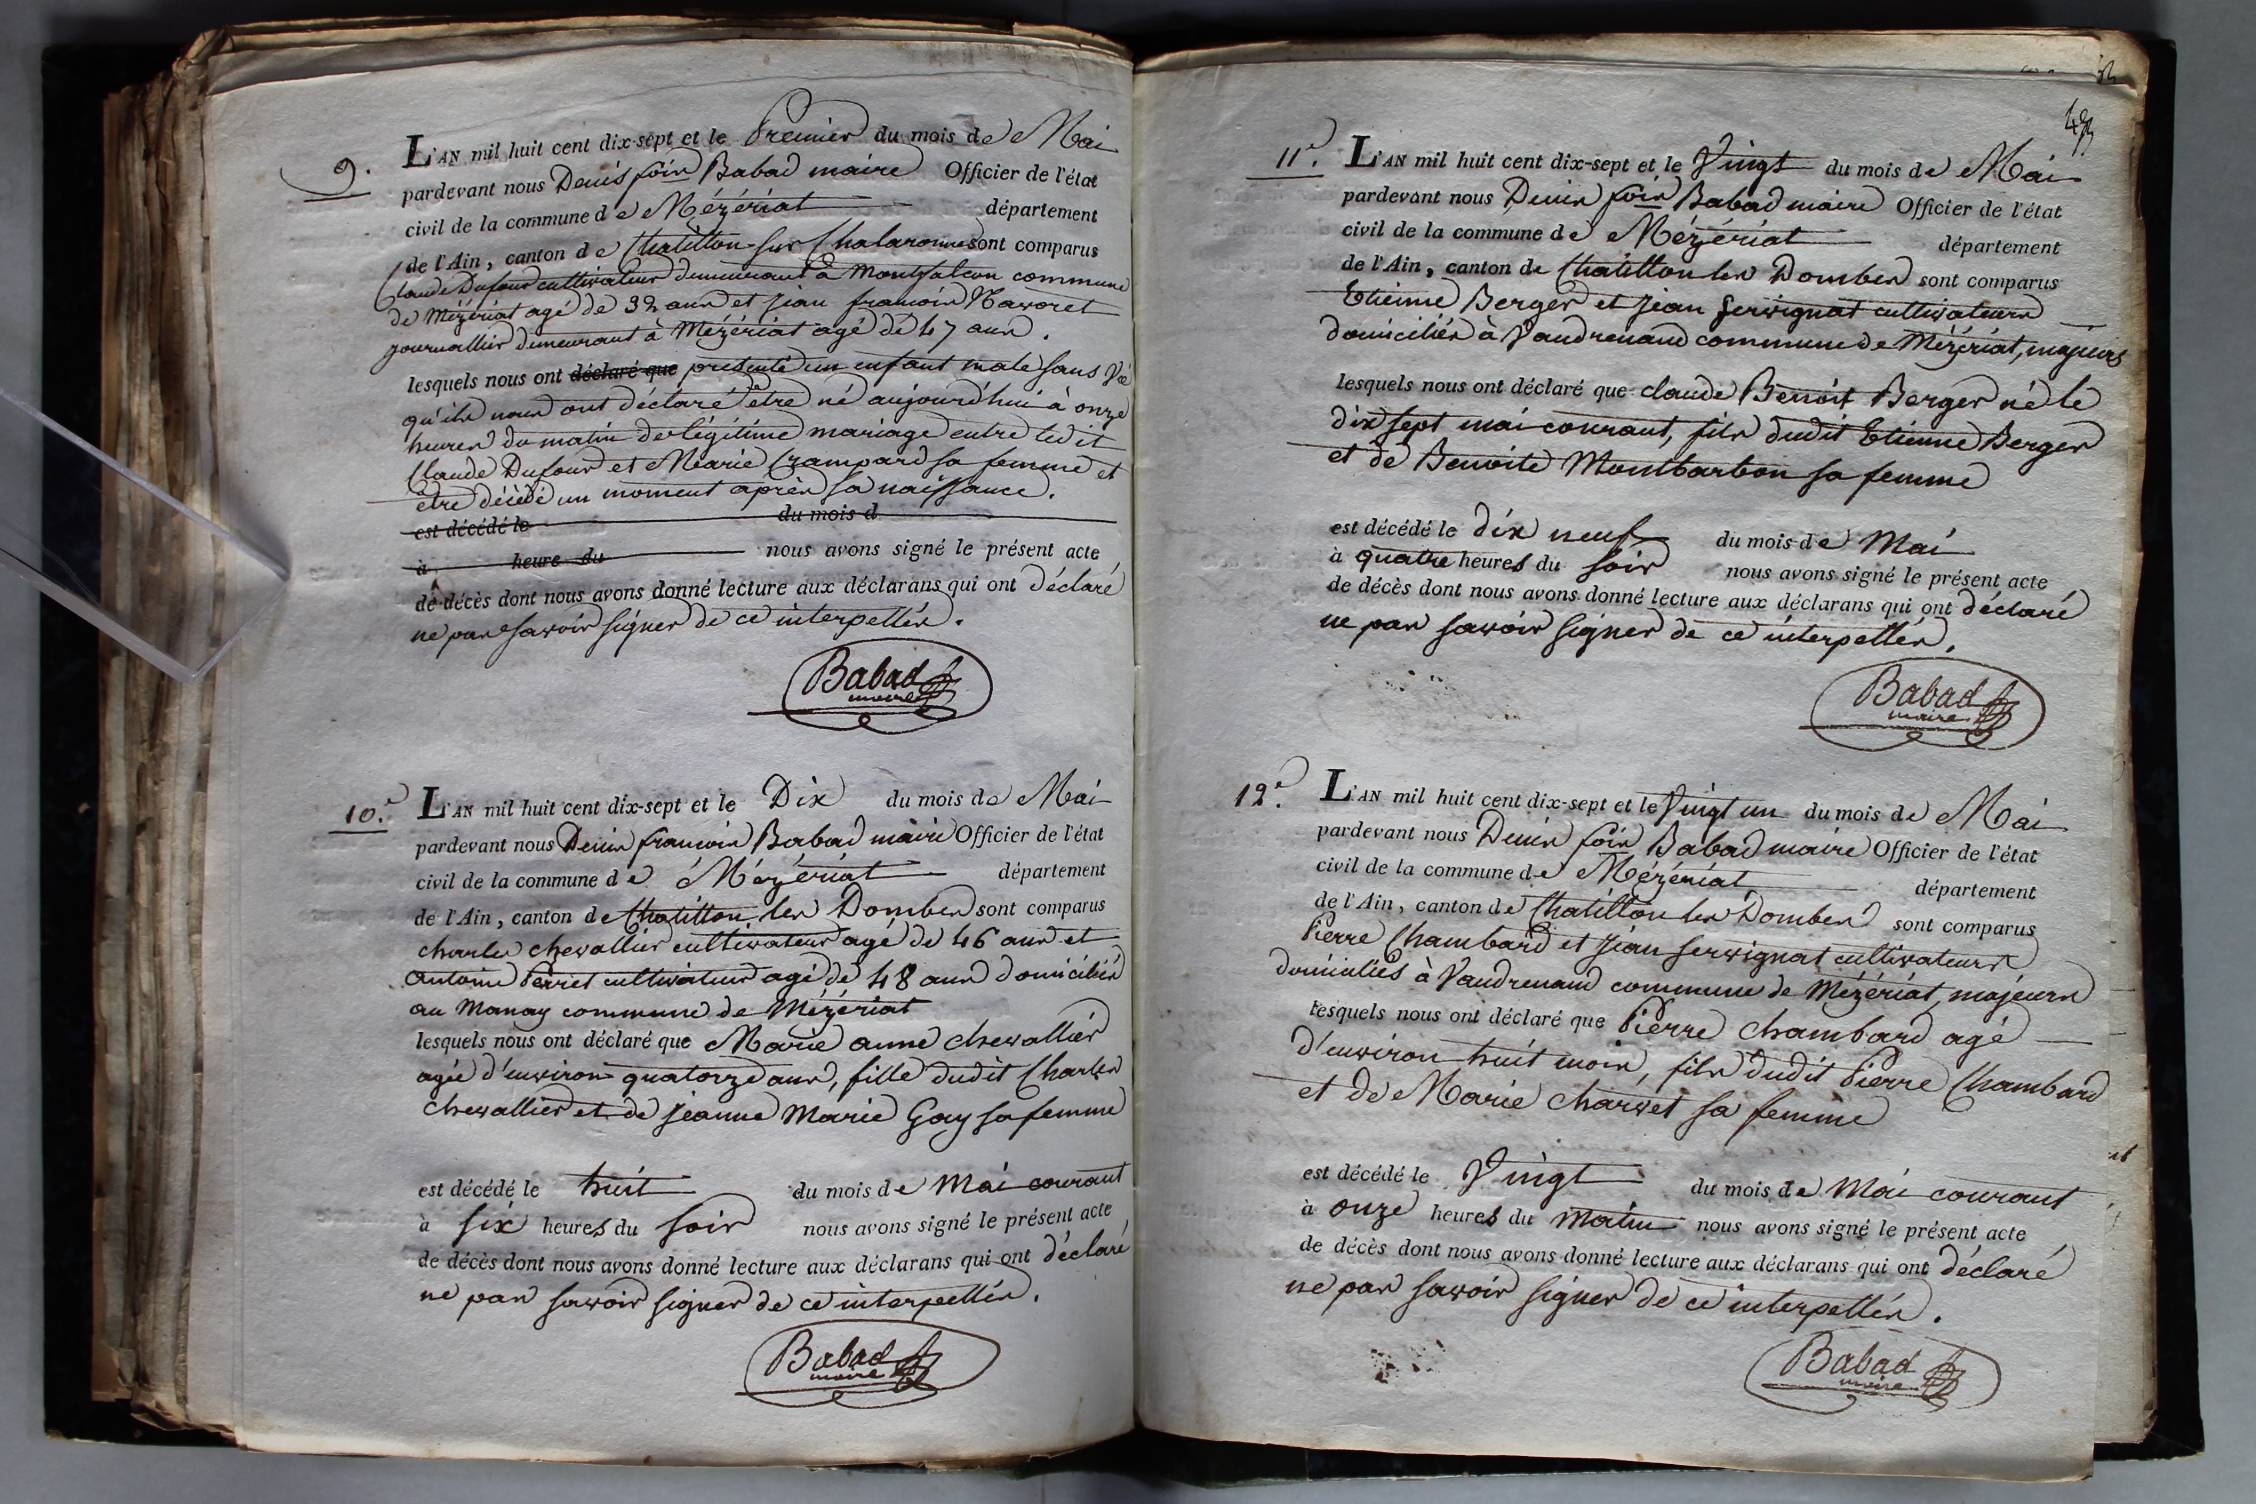 9.
L'AN mil huit cent dix-sept et le Premier du mois de Mai
pardevant nous Denis fçois Babad maire Officier de l'état
civil de la commune de Mézériat département
de l'Ain, canton de Chatillon sur Chalaronne sont comparus
Claude Dufour cultivateur demeurant à Montfalcon commune
de Mézériat agé de 32 ans et jean francois Navoret
journallier demeurant à Mézériat agé de 47 ans.
lesquels nous ont déclaré que présenté un enfant male sans Vie
qu'ils nous ont déclaré être né aujourd'hui à onze
heures du matin de légitime mariage entre ledit
Claude Dufour et Marie Crampard sa femme et
être décédé un moment après sa naissance.
est décédé le du mois d
à heure du nous avons signé le présent acte
de décès dont nous avons donné lecture aux déclarans qui ont déclaré
ne pas savoir signer de ce interpellés.
Babad
maire
10.e
L'AN mil huit cent dix-sept et le Dix du mois de Mai
pardevant nous Denis francois Babad maire Officier de l'état
civil de la commune de Mézériat département
de l'Ain, canton de Chatillon les Dombes sont comparus
charles chevallier cultivateur agé de 46 ans et
antoine Perret cultivateur agé de 48 ans domiciliés
au Manay commune de Mézériat
lesquels nous ont déclaré que Marie anne chevallier
agée d'environ quatorze ans, fille dudit Charles
chevallier et de jeanne Marie Gay sa femme
est décédé le huit du mois de Mai courant
à six heures du soir nous avons signé le présent acte
de décès dont nous avons donné lecture aux déclarans qui ont déclaré
ne pas savoir signer de ce interpellés.
Babad
maire
11.e
L'AN mil huit cent dix-sept et le Vingt du mois de Mai
pardevant nous Denis fçois Babad maire Officier de l'état
civil de la commune de Mézériat département
de l'Ain, canton de Chatillon les Dombes sont comparus
Etienne Berger et jean fervignat cultivateurs
domiciliés à Vaudrenand commune de Mézériat, majeurs
lesquels nous ont déclaré que claude Benoit Berger né le
dix sept mai courant, fils dudit Etienne Berger
et de Benoite Montbarbon sa femme
est décédé le dix neuf du mois de Mai
à quatre heures du soir nous avons signé le présent acte
de décès dont nous avons donné lecture aux déclarans qui ont déclaré
ne pas savoir signer de ce interpellés.
Babad
maire
12.e
L'AN mil huit cent dix-sept et le Vingt un du mois de Mai
pardevant nous Denis fçois Babad maire Officier de l'état
civil de la commune de Mézériat département
de l'Ain, canton de Chatillon les Dombes sont comparus
Pierre Chambard et jean servignat cultivateurs
domiciliés à Vaudrenand commune de Mézériat, majeurs
lesquels nous ont déclaré que Pierre chambard agé
d'environ huit mois, fils dudit Pierre Chambard
et de Marie charvet sa femme
est décédé le Vingt du mois de Mai courant
à onze heures du matin nous avons signé le présent acte
de décès dont nous avons donné lecture aux déclarans qui ont déclaré
ne pas savoir signer de ce interpellés.
Babad
maire